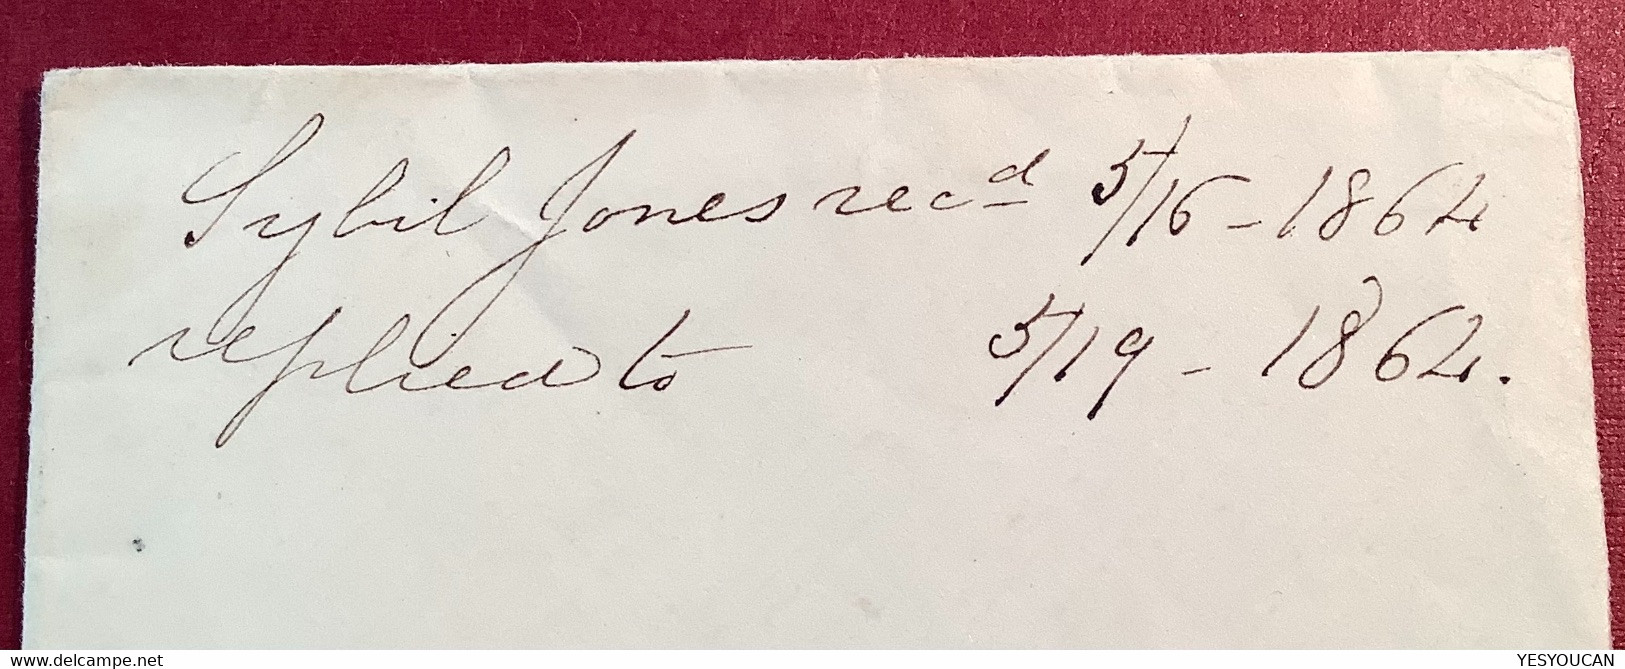 Sybil Jones recd 5/16 - 1864
replied to 5/19 - 1864.
www.delcampe.net
YESYOUCAN